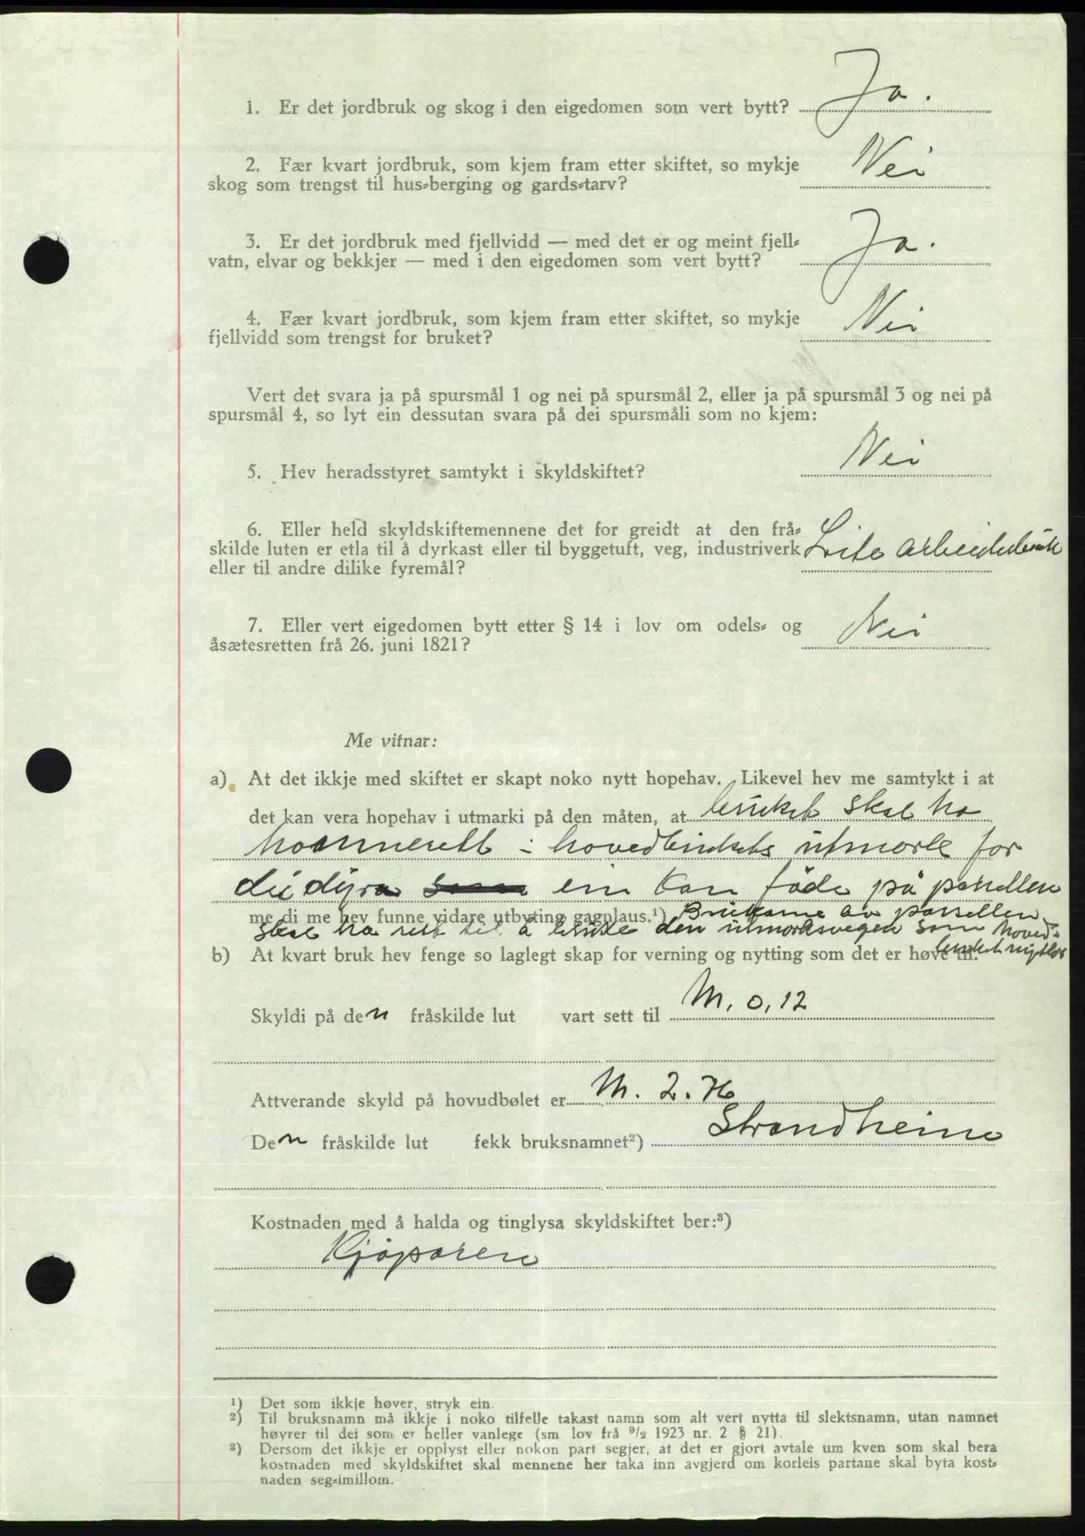 1. Er det jordbruk og skog i den eigedomen som vert bytt? Ja.
2. Fær kvart jordbruk, som kjem fram etter skiftet, so mykje
skog som trengst til hus-berging og gards-tarv? Nei
3. Er det jordbruk med fjellvidd — med det er og meint fjell-
vatn, elvar og bekkjer — med i den eigedomen som vert bytt? Ja.
4. Fær kvart jordbruk, som kjem fram etter skiftet, so mykje
fjellvidd som trengst for bruket? Nei
Vert det svara ja på spursmål 1 og nei på spursmål 2, eller ja på spursmål 3 og nei på
spursmål 4, so lyt ein dessutan svara på dei spursmåli som no kjem:
5. Hev heradsstyret samtykt i skyldskiftet? Nei
6. Eller held skyldskiftemennene det for greidt at den frå-
skilde luten er etla til å dyrkast eller til byggetuft, veg, industriverk Lite arbeidsbruk
eller til andre dilike fyremål?
7. Eller vert eigedomen bytt etter § 14 i lov om odels- og
åsætesretten frå 26. juni 1821? Nei
Me vitnar:
a) At det ikkje med skiftet er skapt noko nytt hopehav. Likevel hev me samtykt i at
det kan vera hopehav i utmarki på den måten, at bruket skal ha
hamnerett i hovedbrukets utmark for
dei dyra ein kan föde på parsellen
me di me hev funne vidare utbyting gagnlaus.¹) Brukarne av parsellen
skal ha rett til å bruke den utmarksvegen som hoved-
b) At kvart bruk hev fenge so laglegt skap for verning og nytting som det er høve til. bruket nyttar
Skyldi på den fråskilde lut vart sett til M. 0,12
Attverande skyld på hovudbølet er M. 2.76
Den fråskilde lut fekk bruksnamnet²) Strandheim
Kostnaden med å halda og tinglysa skyldskiftet ber:³)
Kjöparen
¹) Det som ikkje høver, stryk ein.
²) Til bruksnamn må ikkje i noko tilfelle takast namn som alt vert nytta til slektsnamn, utan namnet
høyrer til dei som er heller vanlege (sm lov frå ⁹/₂ 1923 nr. 2 § 21).
³) Dersom det ikkje er opplyst eller nokon part segjer, at det er gjort avtale um kven som skal bera
kostnaden med skyldskiftet skal mennene her taka inn avgjerd om korleis partane skal byta kost-
naden seg-imillom.